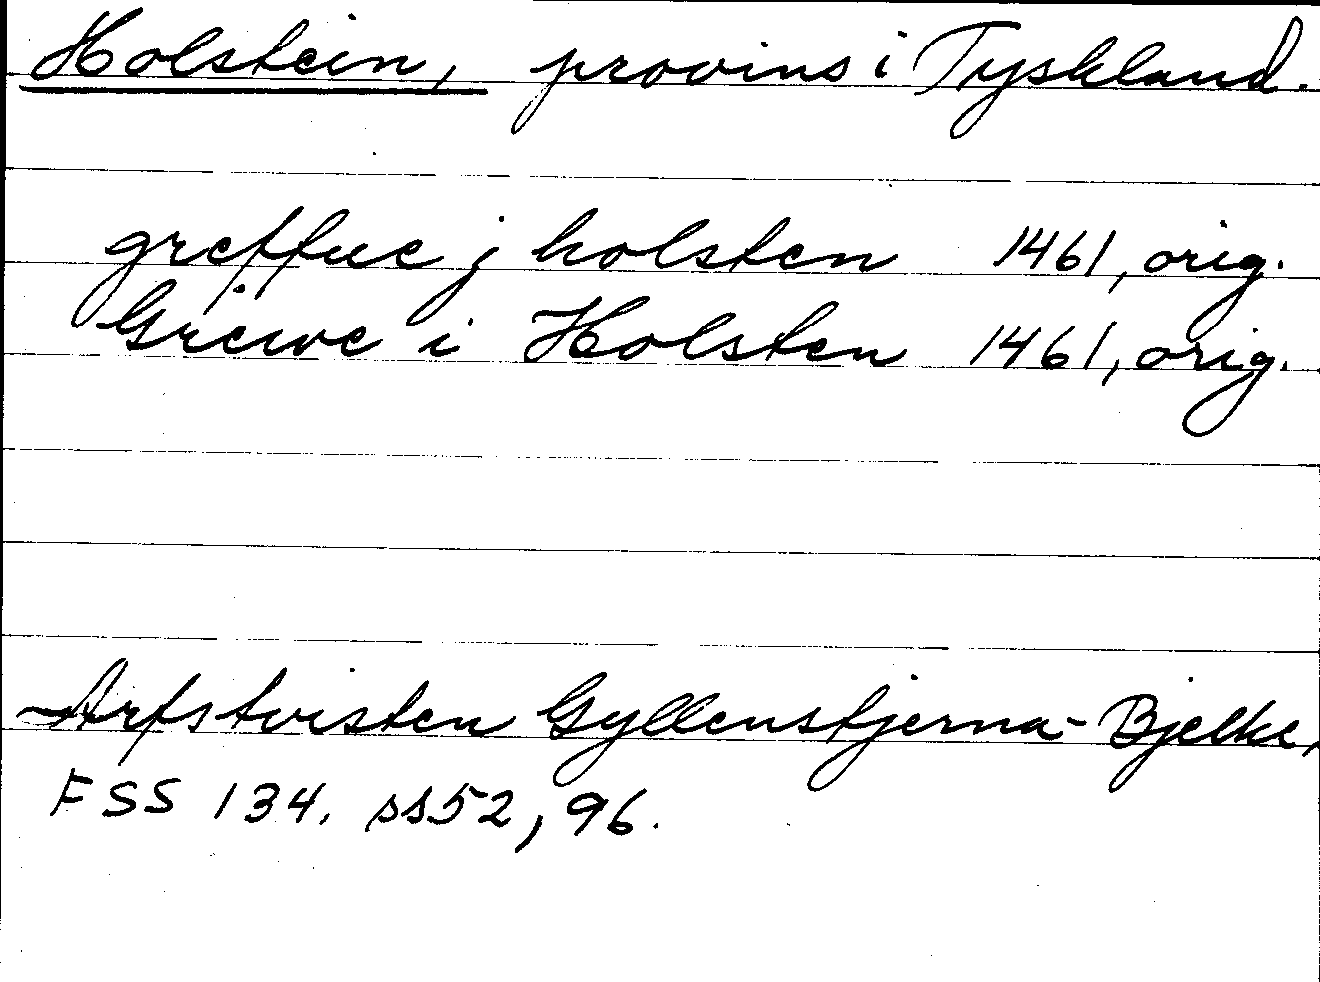 Holstein, provins i Tyskland.
greffue j holsten 1461, orig.
Grewe i Holsten 1461, orig.
Arfstvisten Gyllenstjerna-Bjelke,
FSS 134. ss52, 96.